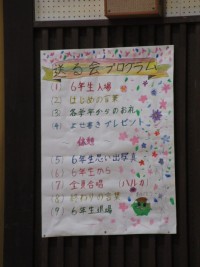 送る会プログラム
(1) 6年生入場
(2) はじめの言葉
(3) 各学年からのお礼
(4) よせ書きプレゼント
休憩
(5) 6年生思い出発表
(6) 6年生から
(7) 全員合唱 (ハルカ)
(8) 終わりの言葉
(9) 6年生退場